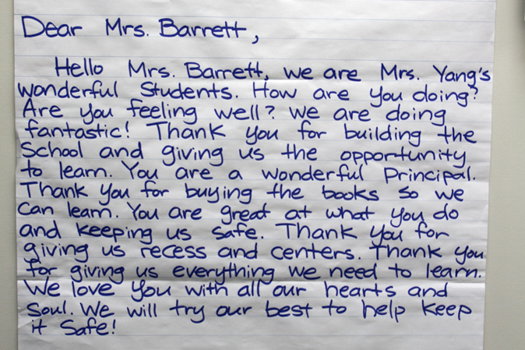 Dear Mrs. Barrett,
Hello Mrs. Barrett, we are Mrs. Yang's
wonderful Students. How are you doing?
Are you feeling well? we are doing
fantastic! Thank you for building the
School and giving us the opportunity
to learn. You are a wonderful Principal.
Thank you for buying the books so we
can learn. You are great at what you do
and keeping us safe. Thank you for
giving us recess and centers. Thank you
for giving us everything we need to learn.
We love you with all our hearts and
Soul. We will try our best to help keep
it Safe!